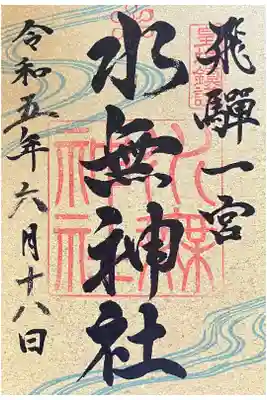 飛驒一宮
水無神社
令和五年六月十八日